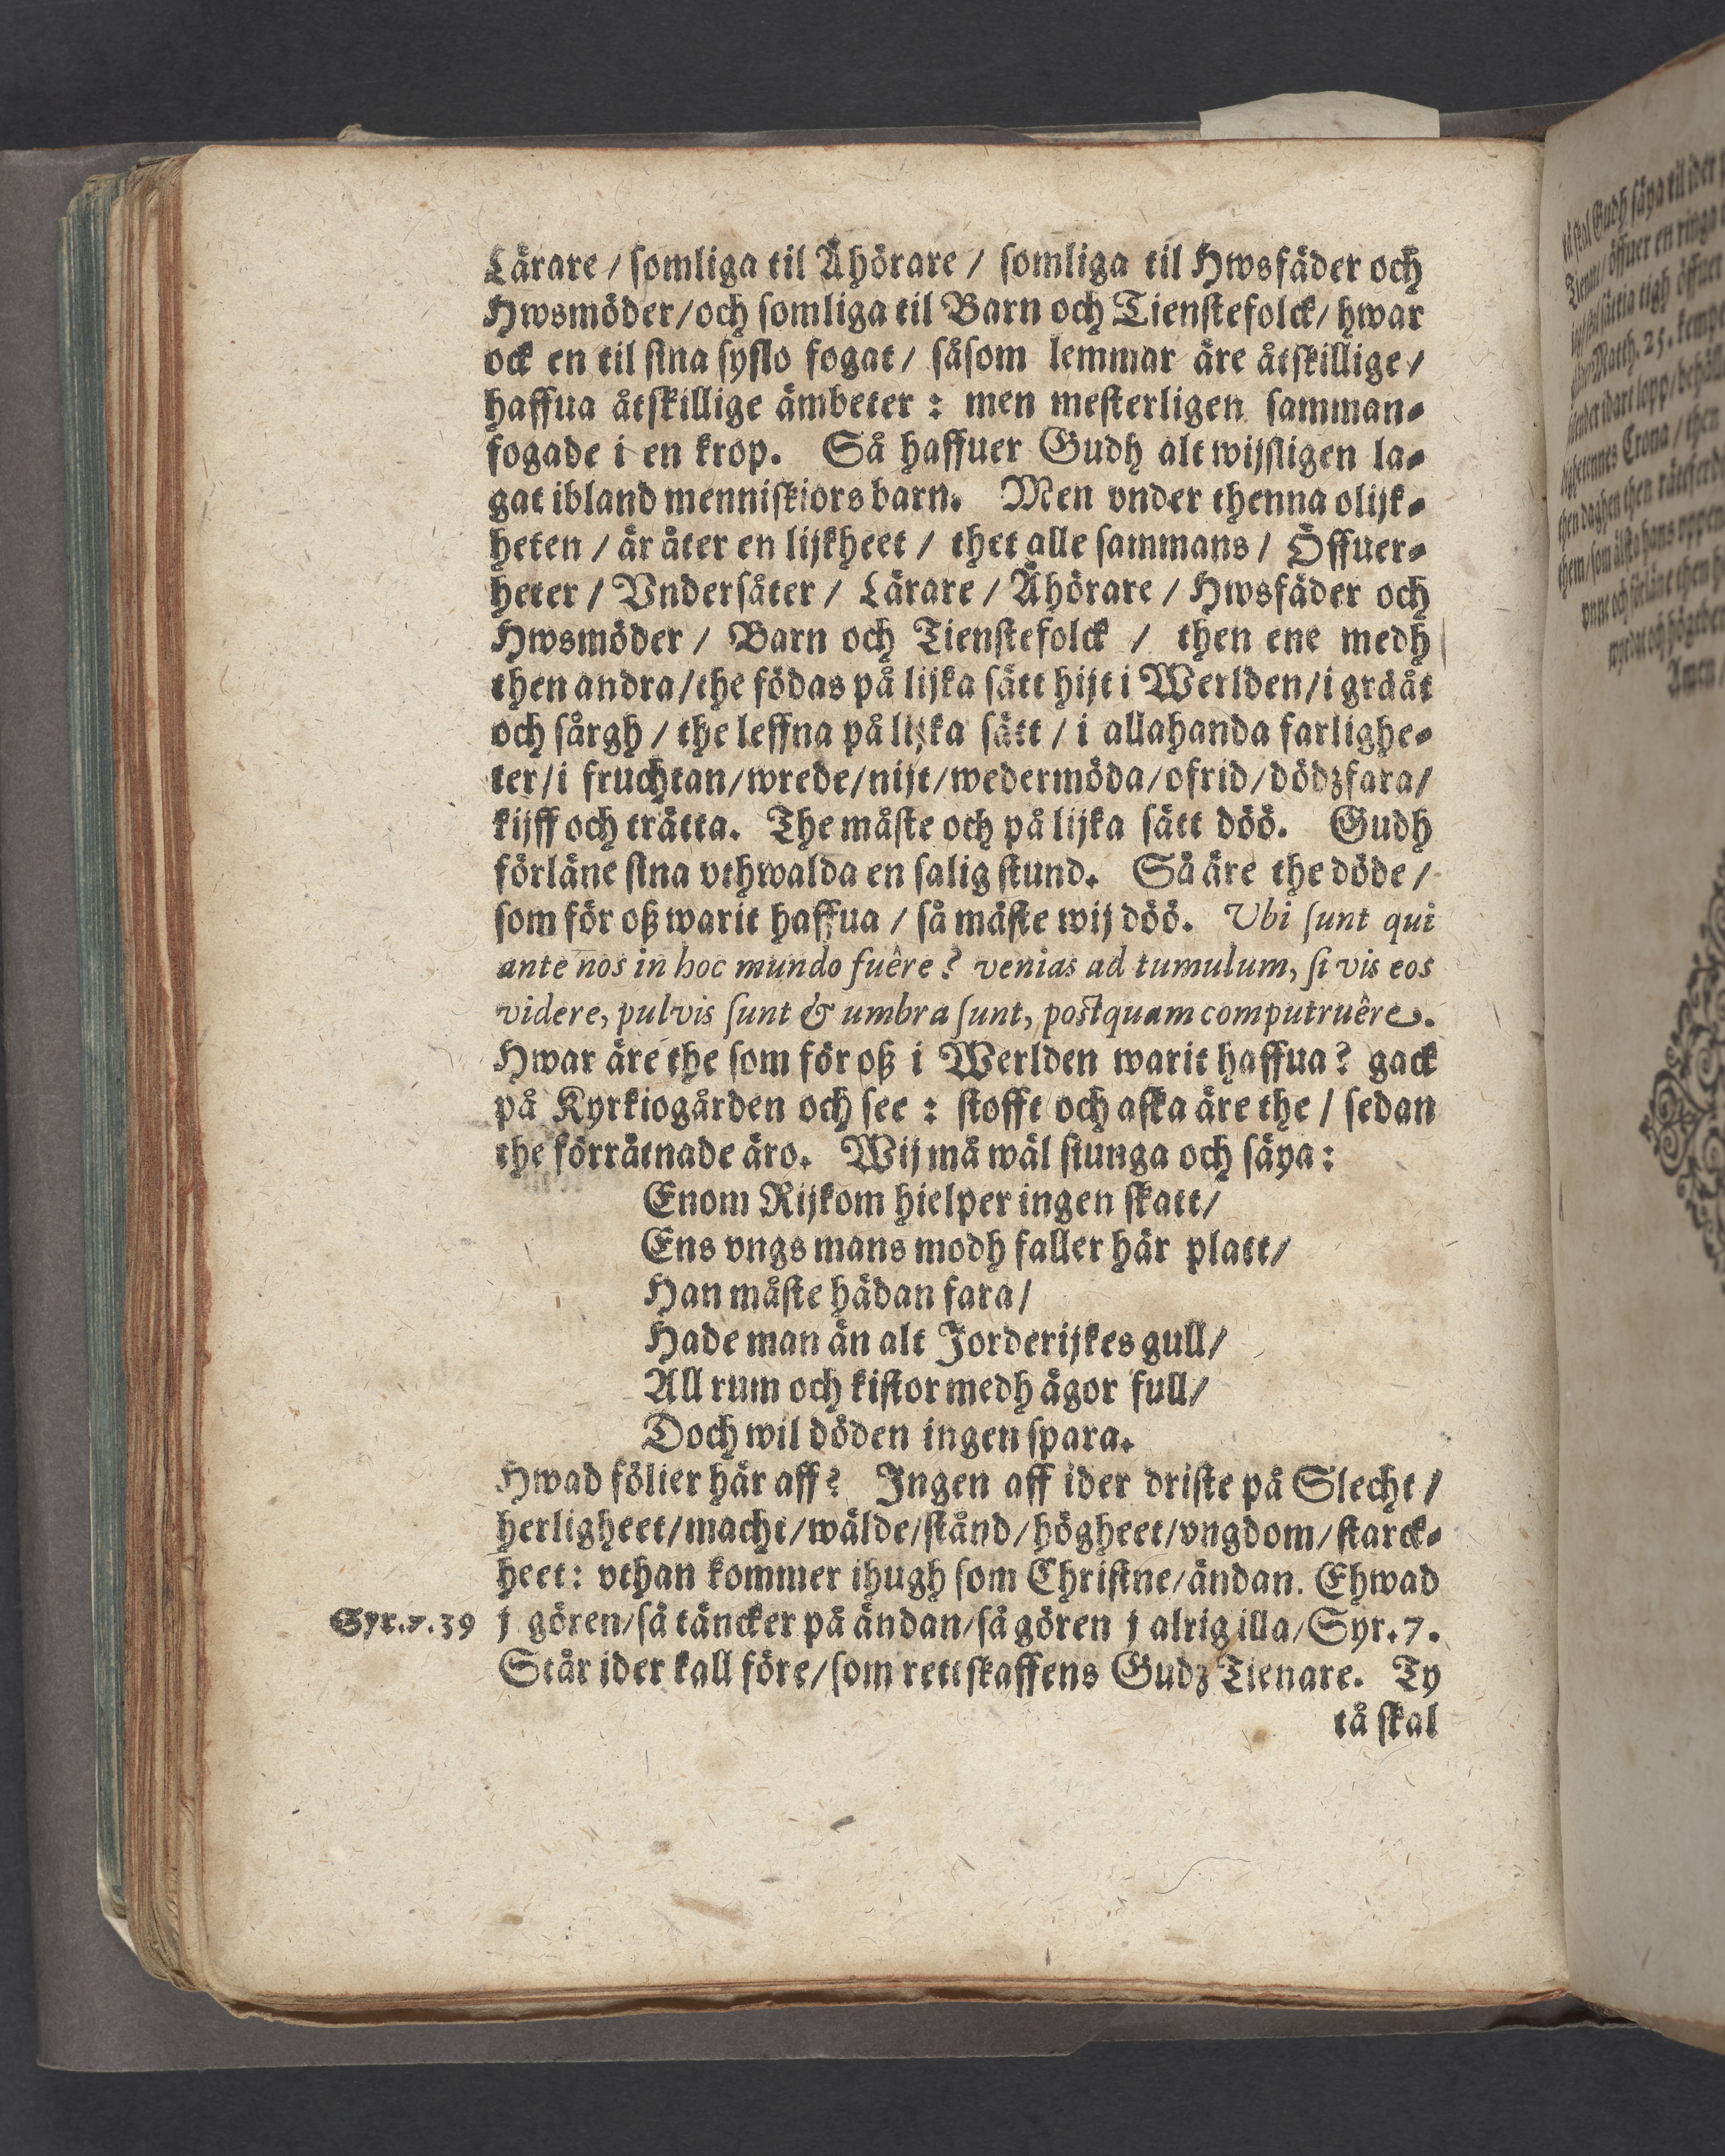 Lärare / somliga til Åhörare / somliga til Hwsfäder och
Hwsmöder/och somliga til Barn och Tienstefolck/ hwar
ock en til sina syslo fogat / såsom lemmar äre åtskillige /
haffua åtskillige ämbeter : men mesterligen samman-
fogade i en krop. Så haffuer Gudh alt wijsligen la-
gat ibland menniskiors barn. Men vnder thenna olijk-
heten / är åter en lijkheet / thet alle sammans / Öffuer-
heter / Vndersåter / Lärare / Åhörare / Hwsfäder och
Hwsmöder / Barn och Tienstefolck / then ene medh
then andra/the födas på lijka sätt hijt i Werlden/i grååt
och sårgh / the leffna på lijka sätt / i allahanda farlighe-
ter/i fruchtan/wrede/nijt/wedermöda/ofrid/dödzfara/
kijff och trätta. The måste och på lijka sätt döö. Gudh
förläne sina vthwalda en salig stund. Så äre the döde /
som för oß warit haffua / så måste wij döö. Ubi sunt qui
ante nos in hoc mundo fuêre? venias ad tumulum, si vis eos
videre, pulvis sunt & umbra sunt, postquam computruêre.
Hwar äre the som för oß i Werlden warit haffua? gack
på Kyrkiogården och see : stofft och aska äre the / sedan
the förråtnade äro. Wij må wäl siunga och säya:
Enom Rijkom hielper ingen skatt/
Ens vngs mans modh faller här platt/
Han måste hädan fara/
Hade man än alt Jorderijkes gull/
All rum och kistor medh ägor full/
Doch wil döden ingen spara.
Hwad fölier här aff? Ingen aff ider driste på Slecht /
herligheet/macht/wälde/stånd/högheet/vngdom/starck-
heet: vthan kommer ihugh som Christne/ändan. Ehwad
Syr.7.39 j gören/så täncker på ändan/så gören j alrig illa/Syr.7.
Står ider kall före/som rettskaffens Gudz Tienare. Ty
tå skal